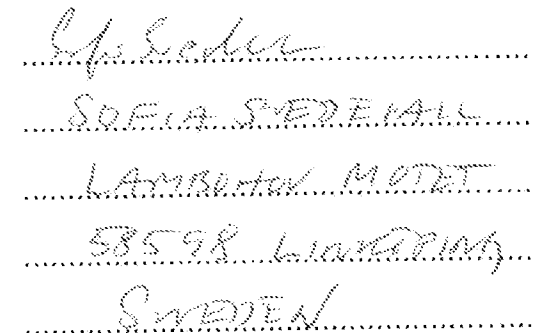 SOFIA SVEDEVALL
LAMBOHOV MOTET
58598 LINKÖPING
SWEDEN